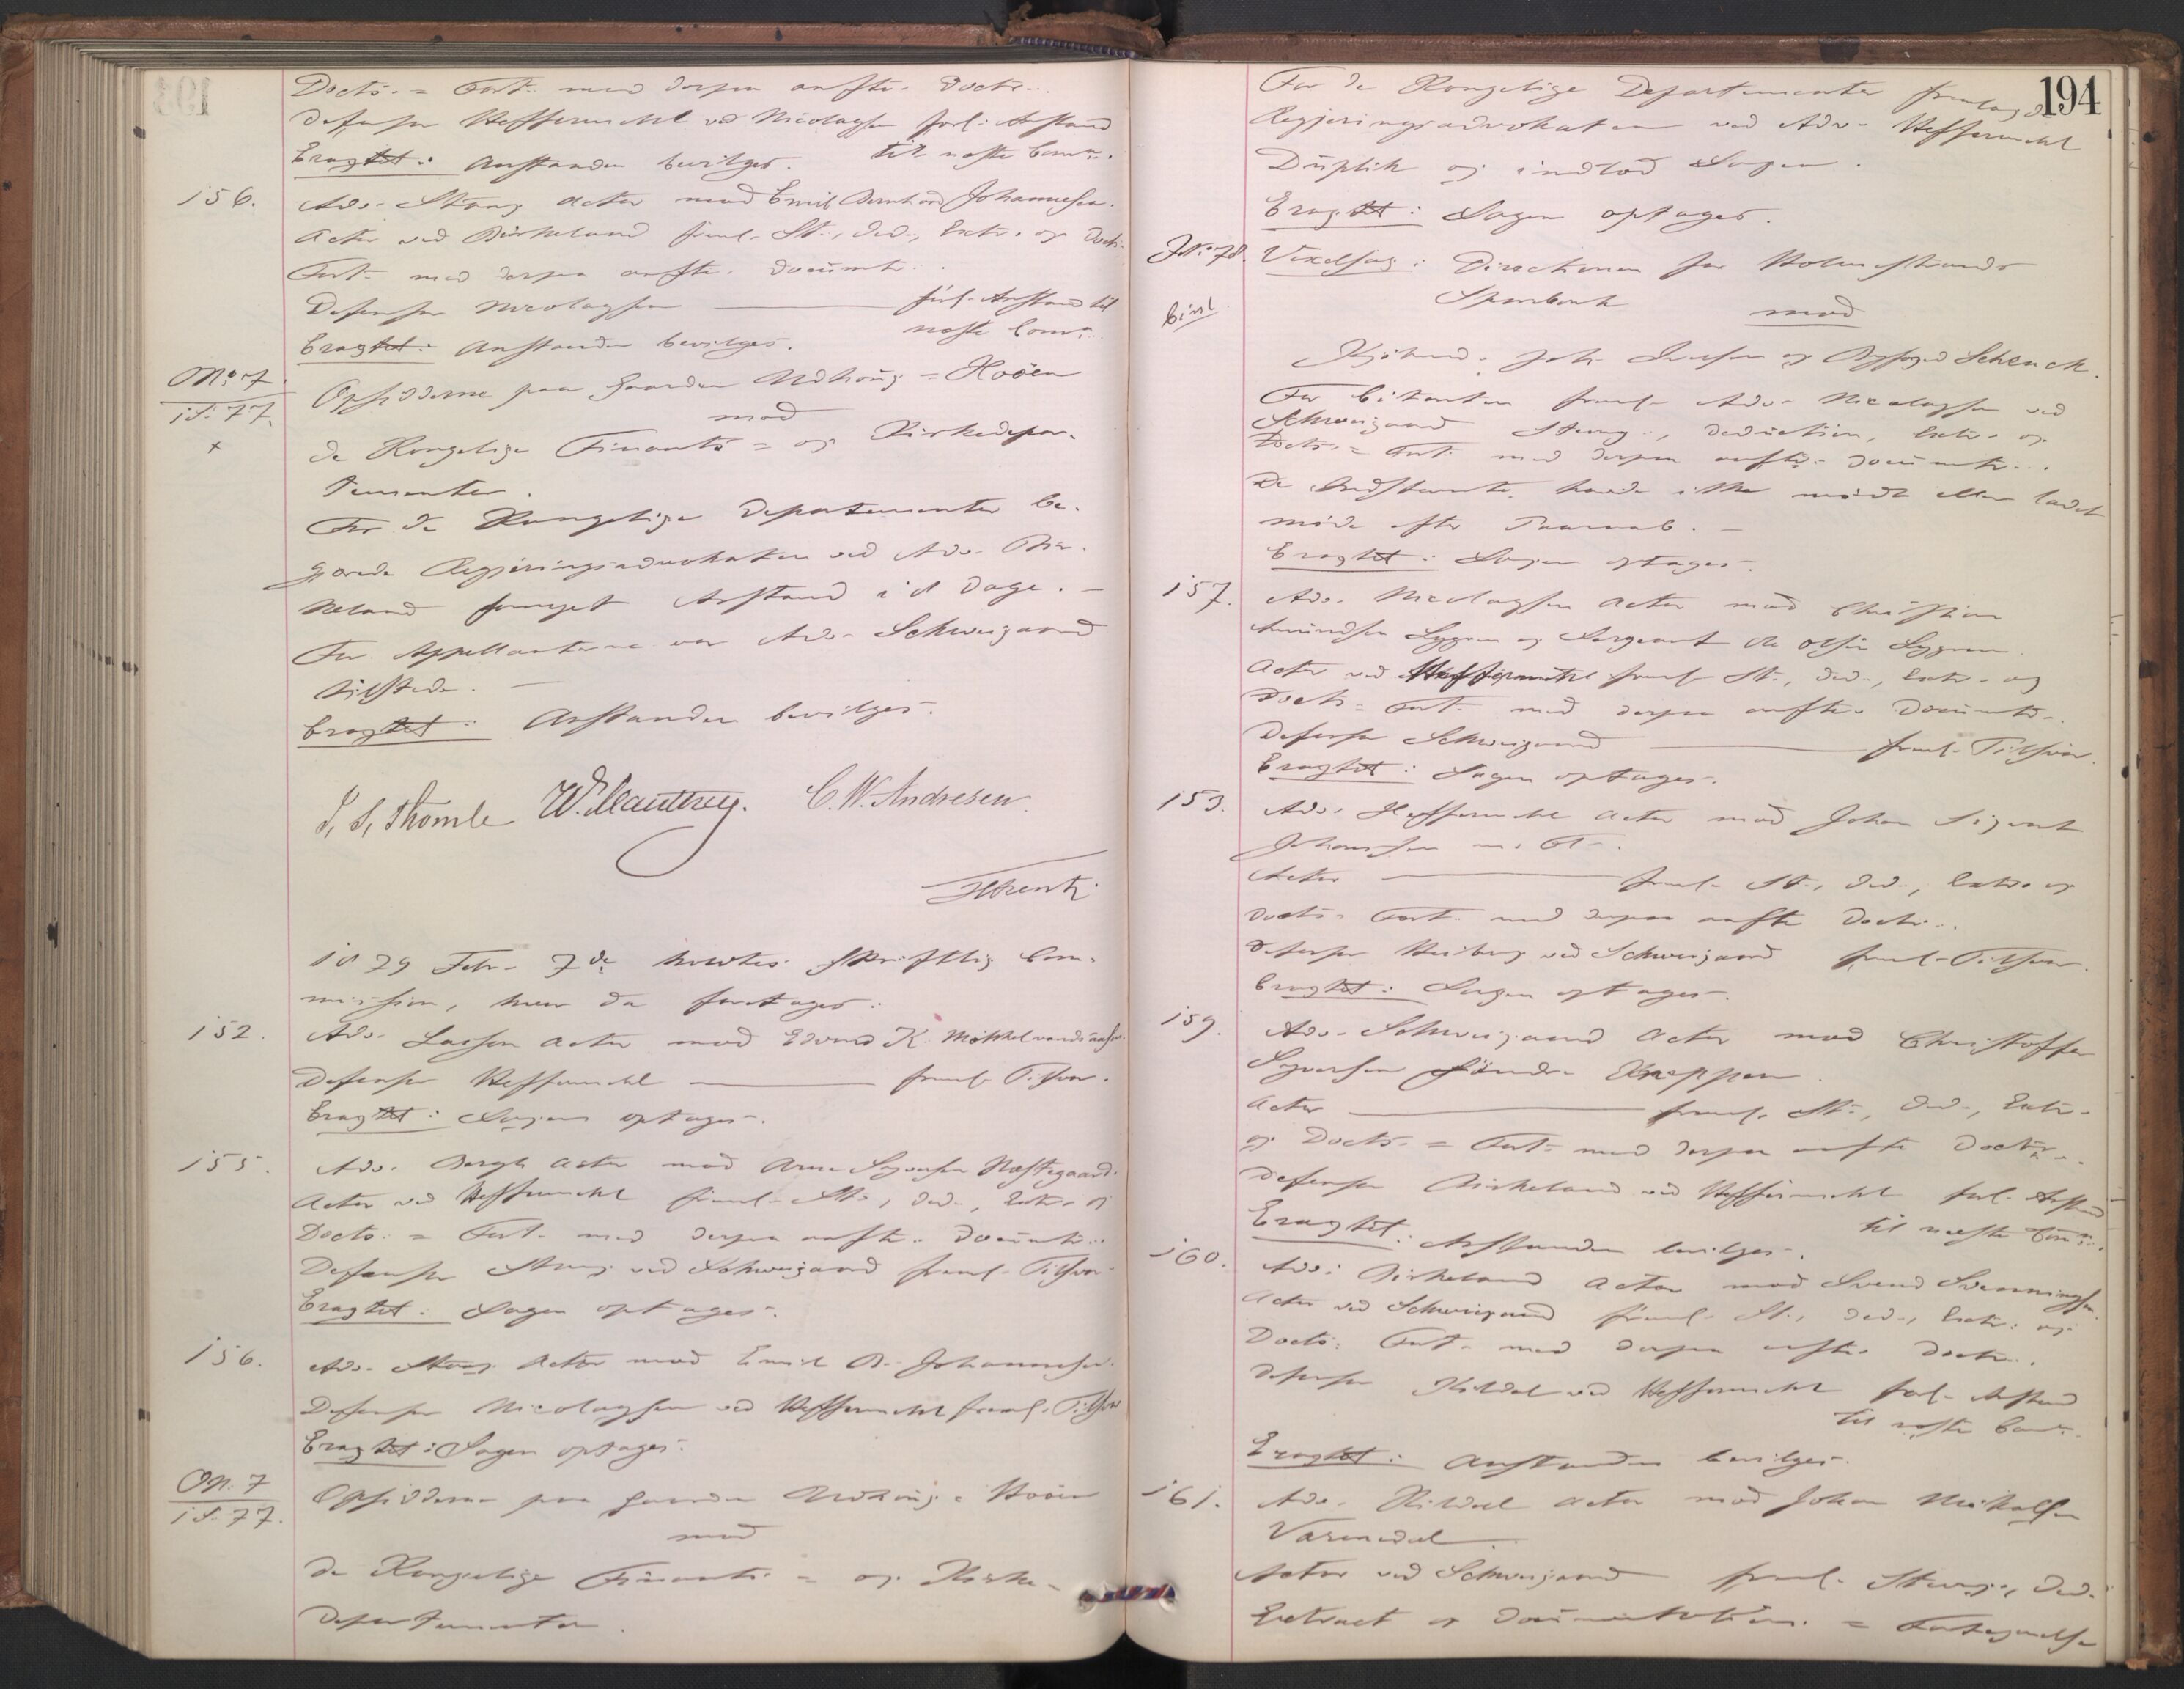 Docts. = Fort. med derpaa anførte Doctr.
Defensor Heffermehl ved Nicolaysen forl. Anstand
Eragtet: Anstanden bevilges. til næste Comn.
156. Adv. Stang Actor mod Emil Bernhard Johannesen.
Actor ved Birkeland freml. St., Ded., Extr. og Docts.
Fort. med derpaa anførte Documtr.
Defensor Nicolaysen forl. Anstand til
næste Comn.
Eragtet: Anstanden bevilges.
O No 7 / i S. 77. x
Opsidderne paa Gaarden = Hoöen
mod
de Kongelige Finants = og Kirkedepar-
tementer.
For de Kongelige Departementer be-
gjærede Regjeringsadvokaten ved Adv. Bir-
keland fornyet Anstand i 8 Dage. -
For Appellanterne var Adv. Schweigaard
tilstede. -
Eragtet: Anstanden bevilges.
I. S. Thomle W. Manthey. C. W. Andresen.
1879 Febr. 7de holdtes skriftlig Com-
mission, hvor da foretoges:
152. Adv. Lassen Actor mod Edvard K.
Defensor Heffermehl freml. Tilsvar.
Eragtet: Sagen optages.
155. Adv. Bergh Actor mod Arne Syversen Næstegaard.
Actor ved Heffermehl freml. St., Ded., Extr. og
Docts. = Fort. med derpaa anførte Documtr.
Defensor Stang ved Schweigaard freml. Tilsvar
Eragtet: Sagen optages.
156. Adv. Stang Actor mod Emil B. Johannesen.
Defensor Nicolaysen ved Heffermehl freml. Tilsvar
Eragtet: Sagen optages.
O N. 7 / i S. 77.
Opsidderne paa Gaarden = Hoöen
mod
de Kongelige Finants = og Kirke-
Departementer.
194
For de Kongelige Departementer fremlagde
Regjeringsadvokaten ved Adv. Heffermehl
Duplik og indlod Sagen.
Eragtet: Sagen optages.
J. No 78. Vexelsag: Directionen for Holmestrands
Civil
Sparebank
mod
Kjöbmd. Joh. Iversen og Byfoged Schenck.
For Citanten freml. Adv. Nicolaysen ved
Schweigaard Stevng., Deduction, Extr. og
Docts. = Fort. med derpaa anførte Documtr.
De Indstevnte havde ikke mödt eller ladet
möde efter Paaraab. -
Eragtet: Sagen optages.
157. Adv. Nicolaysen Actor mod Christian
Amundsen Lyggen og Sergeant Ole Olsen Lyggen.
Actor ved Heffermehl freml. St., Ded., Extr. og
Docts. = Fort. med derpaa anførte Documtr.
Defensor Schweigaard freml. Tilsvar.
Eragtet: Sagen optages.
153. Adv. Heffermehl Actor mod Johan Sigvart
Johansen m. Fl.
Actor freml. St., Ded., Extr. og
Docts. Fort. med derpaa anførte Doctr.
Defensor Heiberg ved Schweigaard freml. Tilsvar.
Eragtet: Sagen optages.
159. Adv. Schweigaard Actor mod Christoffer
Syversen söndre Kreppen.
Actor freml. St., Ded., Extr.
og Docts. = Fort. med derpaa anførte Doctr.
Defensor Birkeland ved Heffermehl forl. Anstand
til næste Comn.
Eragtet: Anstanden bevilges.
160. Adv. Birkeland Actor mod Svend Svenningsen.
Actor ved Schweigaard freml. St., Ded., Extr. og
Docts. Fort. med derpaa anførte Doctr.
Defensor Kildal ved Heffermehl forl. Anstand
til næste Comn.
Eragtet: Anstanden bevilges.
161. Adv. Kildal Actor mod Johan Mikalsen
Actor ved Schweigaard freml. Stevng., Ded.
Extract og Documentations = Fortegnelse